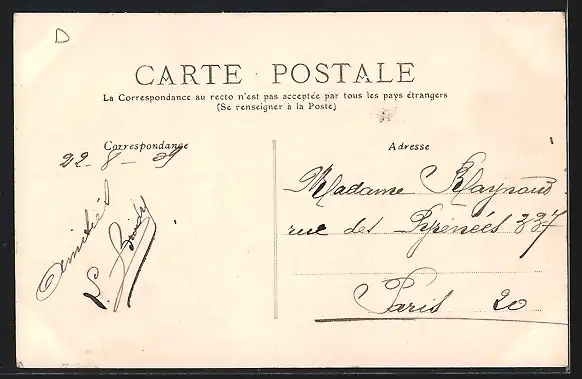 D
CARTE POSTALE
La Correspondance au recto n'est pas acceptée par tous les pays étrangers
(Se renseigner à la Poste)
Correspondance
22-8-09
Amitiés
Adresse
Madame Raynaud
rue des Pyrénées 337
Paris 20